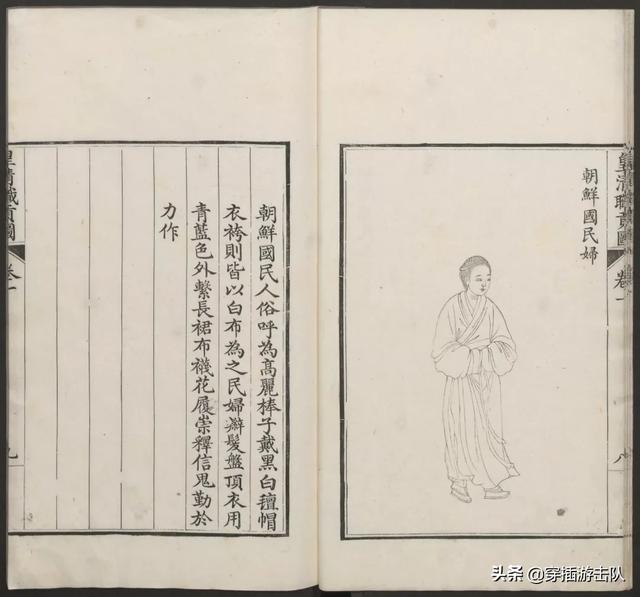 皇清職貢圖
卷一
朝鮮國民婦
八
朝鮮國民人俗呼為高麗棒子戴黑白氊帽
衣袴則皆以白布為之民婦辮髮盤頂衣用
青藍色外繫長裙布襪花履崇釋信鬼勤於
力作
皇清職貢圖
卷一
九
头条 @穿插游击队